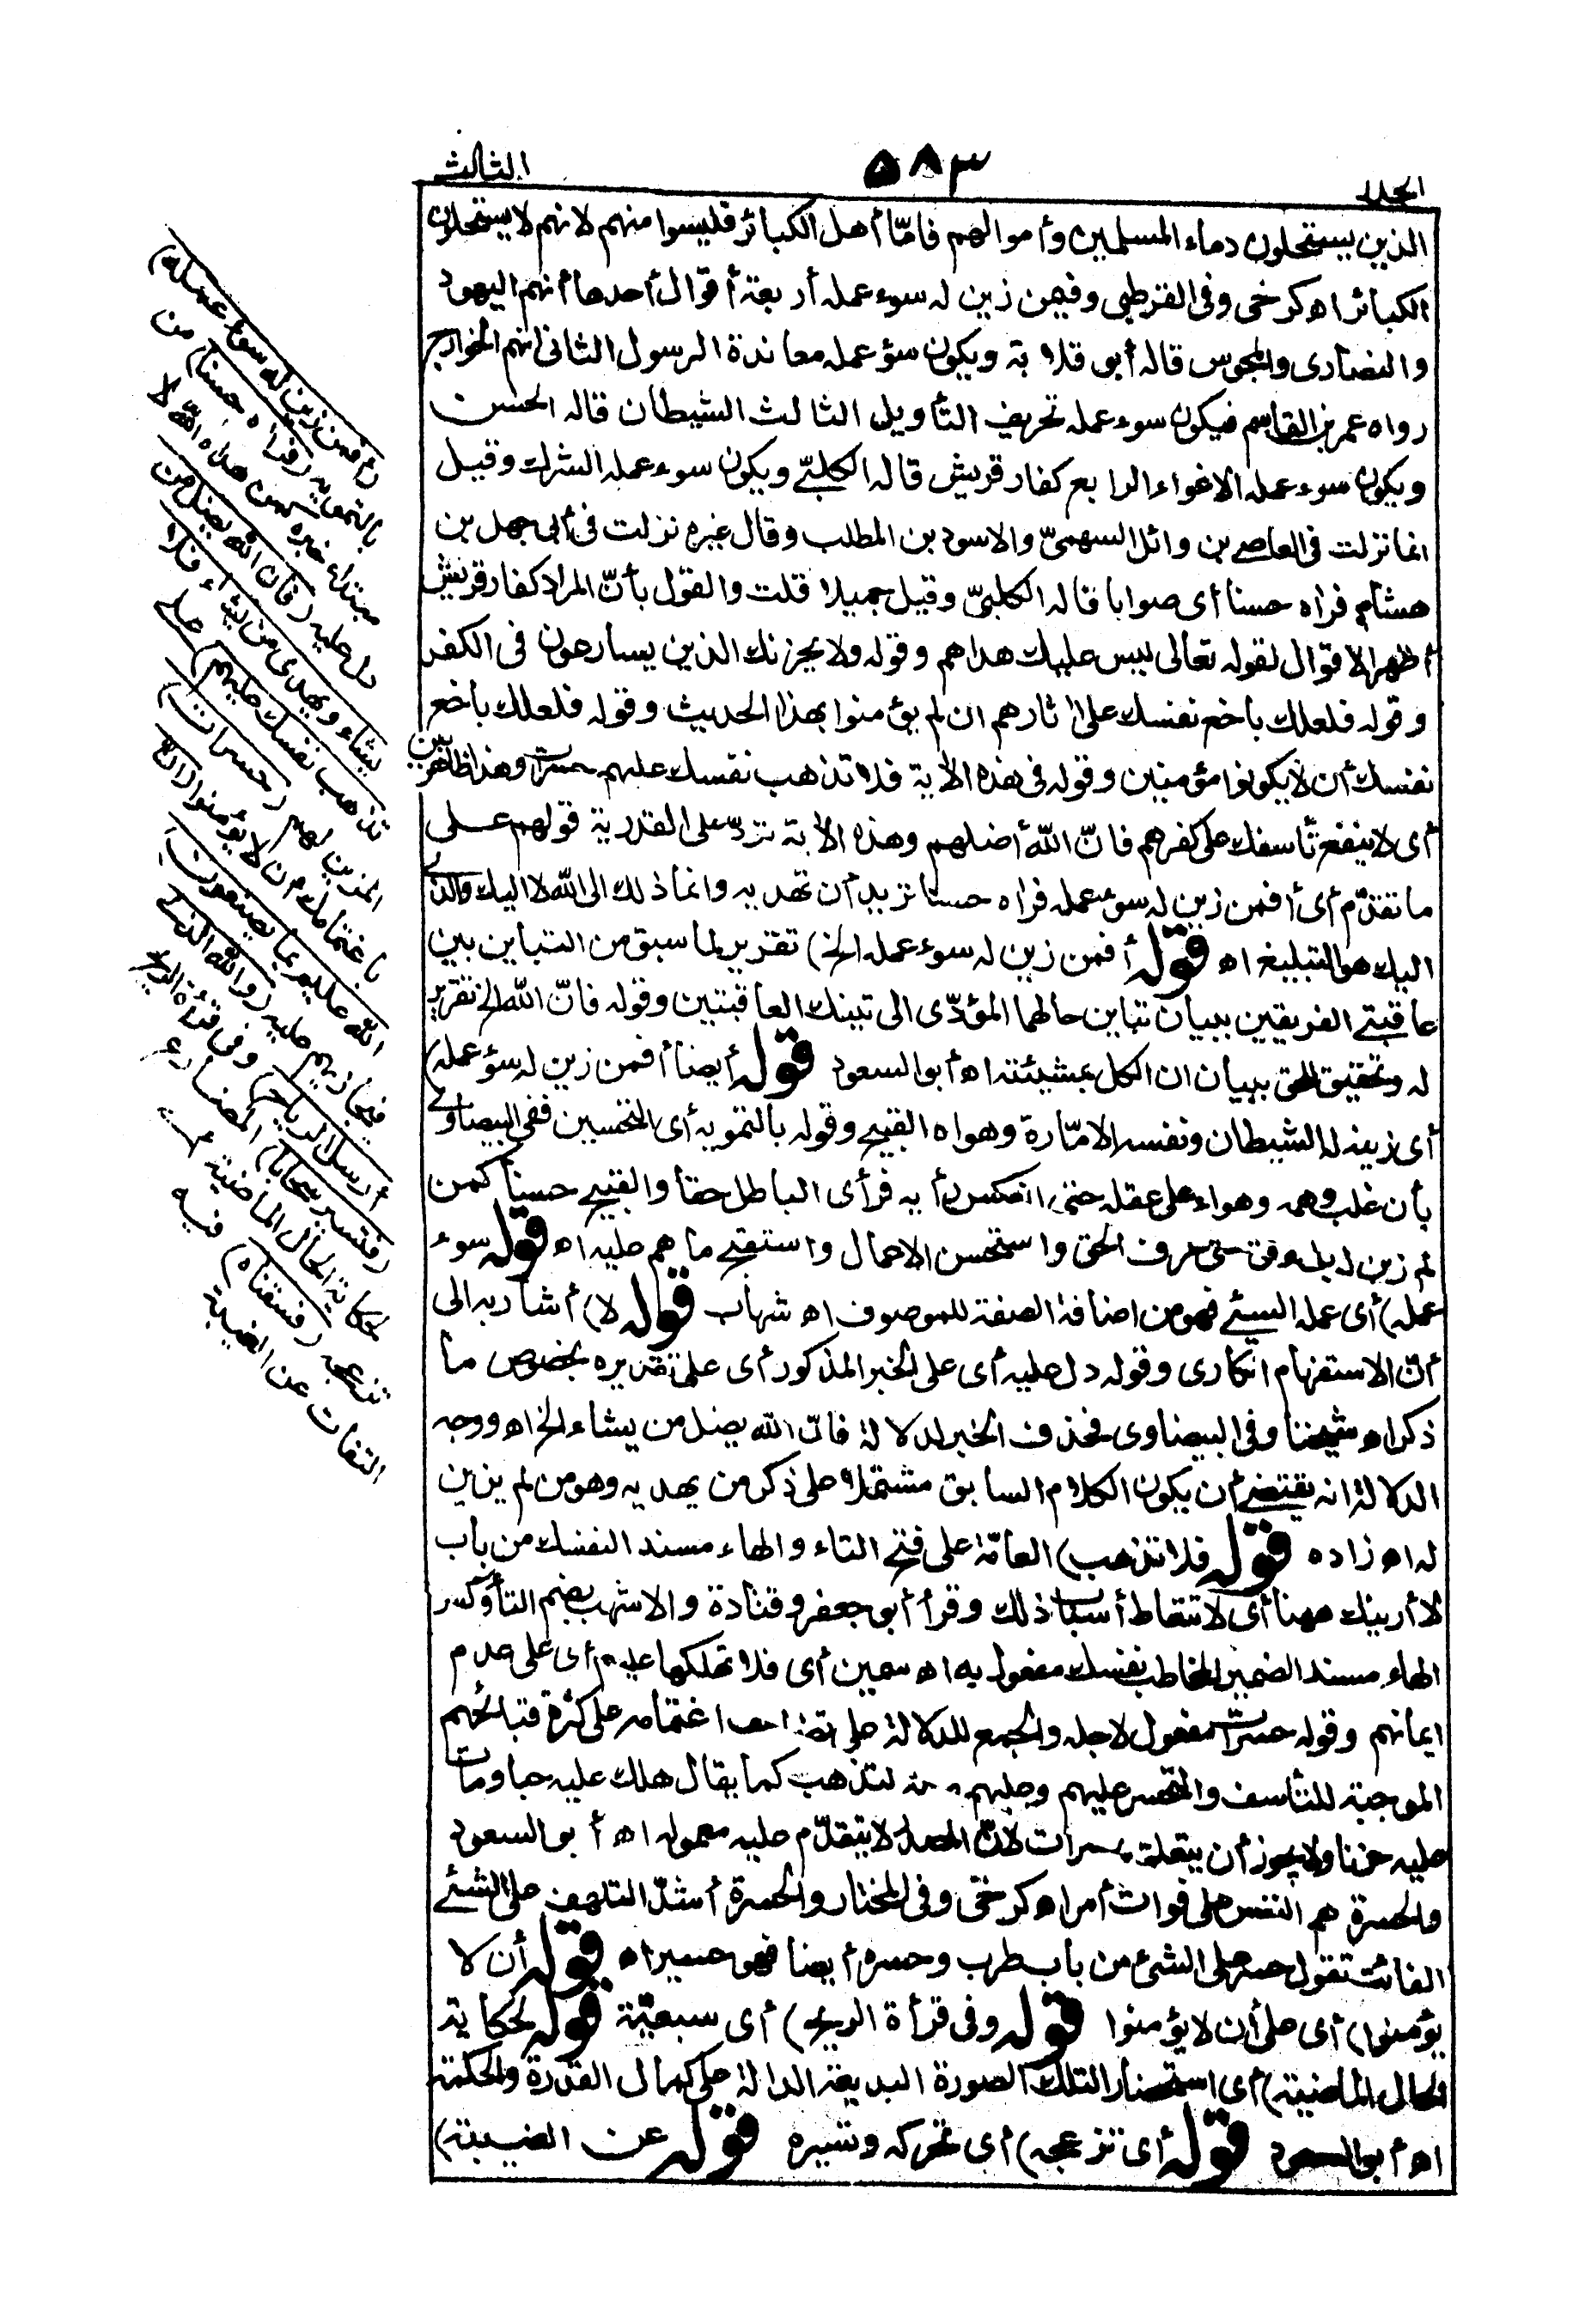 المجلد
٥٨٣
الثالث
الذين يستحلون دماء المسلمين وأموالهم فامّا أهل الكبائر فليسوا منهم لانهم لا يستحلون
الكبائر اه كرخى وفى القرطبى وفيمن زين له سوء عمله أربعة أقوال أحدها أنهم اليهود
والنصارى والمجوس قاله أبو قلابة ويكون سوء عمله معاندة الرسول الثانى انهم الخوارج
رواه عمر بن القاسم فيكون سوء عمله تحريف التأويل الثالث الشيطان قاله الحسن
ويكون سوء عمله الاغواء الرابع كفار قريش قاله الكلبىّ ويكون سوء عمله الشرك وقيل
انما نزلت فى العاصى بن وائل السهمىّ والاسود بن المطلب وقال غيره نزلت فى أبى جهل بن
هشام فراه حسنا أى صوابا قاله الكلبىّ وقيل جميلا قلت والقول بأنّ المراد كفار قريش
أظهر الاقوال لقوله تعالى ليس عليك هداهم وقوله ولا يحزنك الذين يسارعون فى الكفر
وقوله فلعلك باخع نفسك على اثارهم ان لم يؤمنوا بهذا الحديث وقوله فلعلك باخع
نفسك أن لا يكونوا مؤمنين وقوله فى هذه الاية فلا تذهب نفسك عليهم حسرات وهذا ظاهر بين
أى لا ينفع تأسفك على كفرهم فانّ الله أضلهم وهذه الاية تردّ على القدرية قولهم على
ما تقدّم أى أفمن زين له سوء عمله فراه حسنا تريد أن تهديه وانما ذلك الى الله لا اليك والذى
اليك هو التبليغ اه قوله أفمن زين له سوء عمله الخ) تقرير لما سبق من التباين بين
عاقبتى الفريقين ببيان تباين حالهما المؤدّى الى تينك العاقبتين وقوله فانّ الله الخ تقرير
له وتحقيق للحق ببيان ان الكل بمشيئته اه أبو السعود قوله أيضا أفمن زين له سوء عمله)
أى زينه له الشيطان ونفسه الامّارة وهواه القبيح وقوله بالتمويه أى التحسين ففى البيضاوى
بأن غلب وهمه وهواه على عقله حتى انعكس رأيه فرأى الباطل حقا والقبيح حسنا كمن
لم زين له بل وفق حتى عرف الحق واستحسن الاعمال واستقبح ما هم عليه اه قوله سوء
عمله) أى عمله السيئ فهو من اضافة الصفة للموصوف اه شهاب قوله لا) أشار به الى
أنّ الاستفهام انكارى وقوله دل عليه أى على الخبر المذكور أى على تقديره بخصوص ما
ذكر اه شيخنا وفى البيضاوى فحذف الخبر لدلالة فانّ الله يضل من يشاء الخ اه ووجه
الدلالة انه يقتضى أن يكون الكلام السابق مشتملا على ذكر من يهديه وهو من لم يزين
له اه زاده قوله فلا تذهب) العامّة على فتح التاء والهاء مسند النفسك من باب
لا أرينك ههنا أى لا تتعاط أسباب ذلك وقرأ أبو جعفر وقتادة والاشهب بضم التاء وكسر
الهاء مسند الضمير المخاطب نفسك مفعول به اه سمين أى فلا تهلكها عليهم أى على عدم
ايمانهم وقوله حسرات مفعول لاجله والجمع للدلالة على تضاعف اغتمامه على كثرة قبائحهم
الموجبة للتأسف والتحسر عليهم وعليهم صلة لتذهب كما يقال هلك عليه حبا ومات
عليه حزنا ولا يجوز أن يتعلق بحسرات لانّ المصدر لا يتقدّم عليه معموله اه أبو السعود
والحسرة هم النفس على فوات أمر اه كرخى وفى المختار والحسرة أشدّ التلهف على الشئ
الفائت تقول حسر على الشئ من باب طرب وحسرة أيضا فهو حسير اه قوله أن لا
يؤمنوا) أى على أن لا يؤمنوا قوله وفى قرأة الريح) أى سبعيّة قوله لحكاية
الحال الماضية) أى استحضارا لتلك الصورة البديعة الدالة على كمال القدرة والحكمة
اه أبو السعود قوله أى تزعجه) أى تحركه وتثيره قوله عن الغيبة)
(أفمن زين له سوء عمله)
بالتمويه (فراه حسنا) من
مبتداء خبره كمن هداه الله لا
دل عليه (فان الله يضل من
يشاء ويهدى من يشاء فلا
تذهب نفسك عليهم) على
المزين لهم (حسرات)
باغتمامك أن لا يؤمنوا (ان
الله عليم بما يصنعون)
فيجازيهم عليه (والله الذى
أرسل الرياح) وفى قرأة الريح
(فتثير سحابا) المضارع
لحكاية الحال الماضية أى
تزعجه (فسقناه) فيه
التفات عن الغيبة